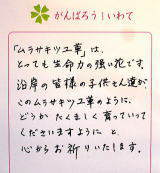 がんばろう!いわて
「ムラサキツユ草」は、
とっても生命力の強い花です。
沿岸の皆様の子供さん達が、
このムラサキツユ草のように、
どうか たくましく 育っていって
くださいますように と
心からお祈りいたします。